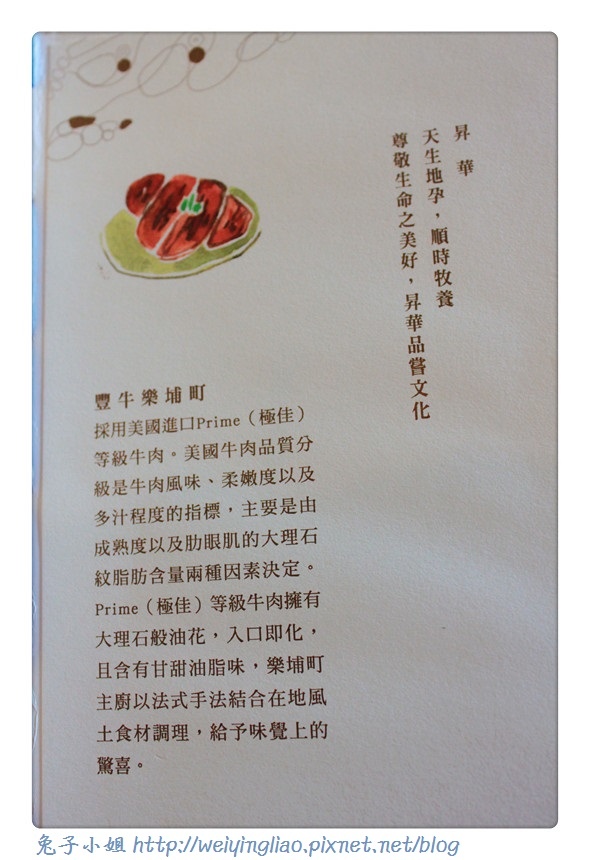 昇華
天生地孕，順時牧養
尊敬生命之美好，昇華品嘗文化
豐牛樂埔町
採用美國進口Prime（極佳）
等級牛肉。美國牛肉品質分
級是牛肉風味、柔嫩度以及
多汁程度的指標，主要是由
成熟度以及肋眼肌的大理石
紋脂肪含量兩種因素決定。
Prime（極佳）等級牛肉擁有
大理石般油花，入口即化，
且含有甘甜油脂味，樂埔町
主廚以法式手法結合在地風
土食材調理，給予味覺上的
驚喜。
兔子小姐 http://weiyingliao.pixnet.net/blog